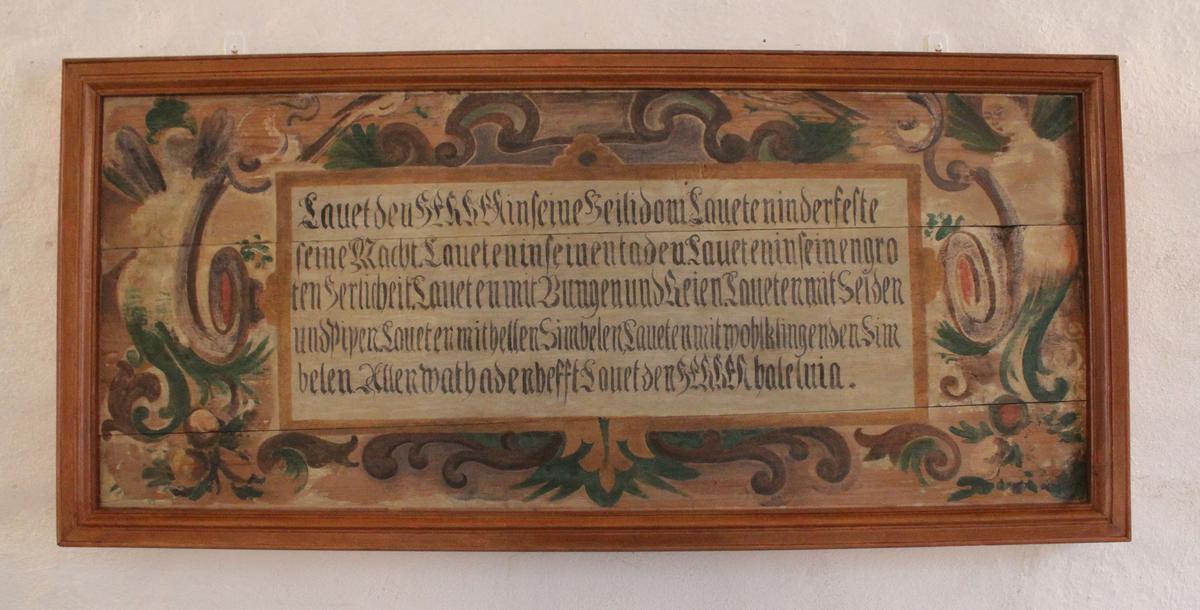 Lauet den HERREN in seine Heilidom Laueten in der feste
seine Macht. Laueten in seinen taden Laueten in seinen gro
ten Herlicheit. Laueten mit Bungen und Reien Laueten mit Seiden
und Pipen Laueten mit hellen Simbelen, Laueten mit wohlklingenden Sim
belen. Allen wat haden hefft Lauet den HERREN haleluia.